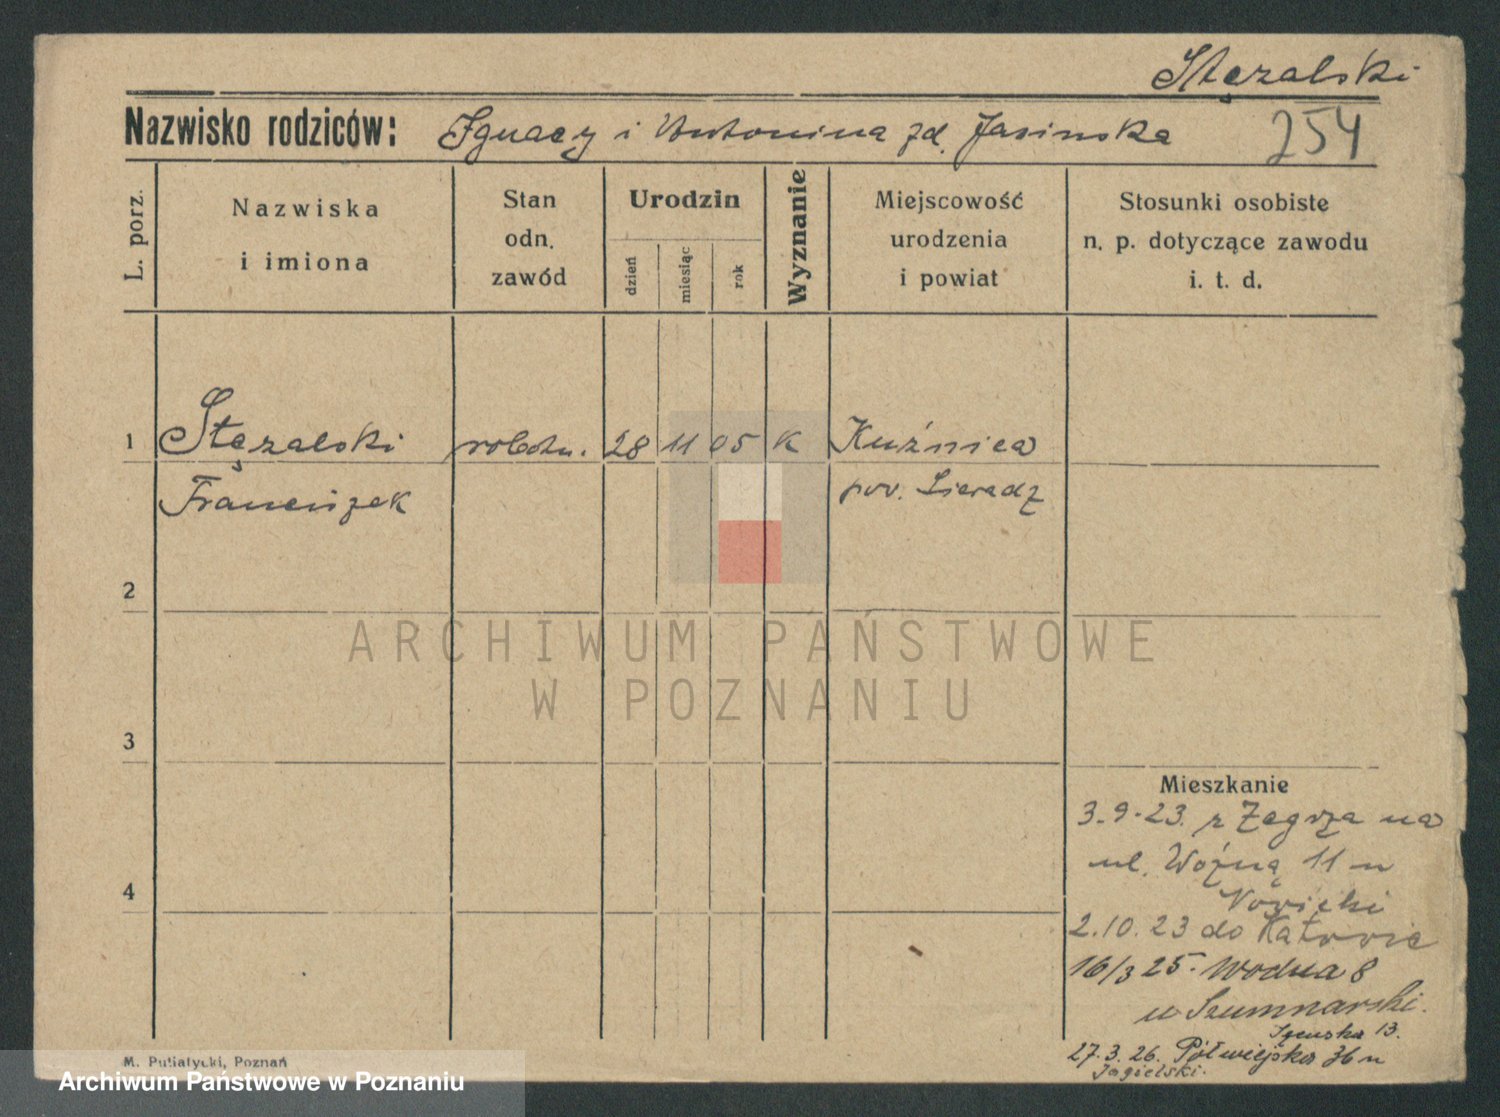 Stęzalski
Nazwisko rodziców: Ignacy i Antonina zd. Jasinska 254
L. porz.
Nazwiska
i imiona
Stan
odn.
zawód
Urodzin
dzień
miesiąc
rok
Wyznanie
Miejscowość
urodzenia
i powiat
Stosunki osobiste
n. p. dotyczące zawodu
i. t. d.
1 Stęzalski robotn. 28 11 05 K Kuźnica
Franciszek pov. Sieradz
2
ARCHIWUM PAŃSTWOWE
W POZNANIU
3
Mieszkanie
3-9-23. z Zegrza na
ul. Woźną 11 u
4
2.10.23 do Katowic
16/3 25. Wodna 8
u Szumnarski.
13.
27.3.26. Półwiejska 36 u
Jagielski.
M. Putiatycki, Poznań
Archiwum Państwowe w Poznaniu